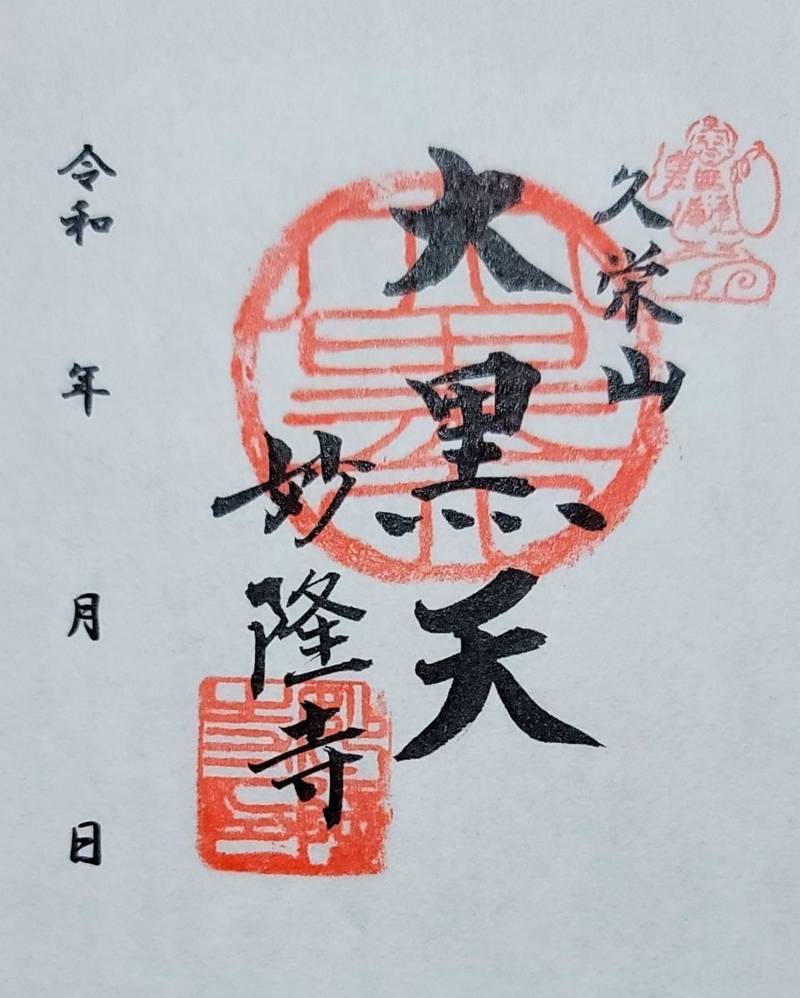 久栄山
大黒天
妙隆寺
令和 年 月 日